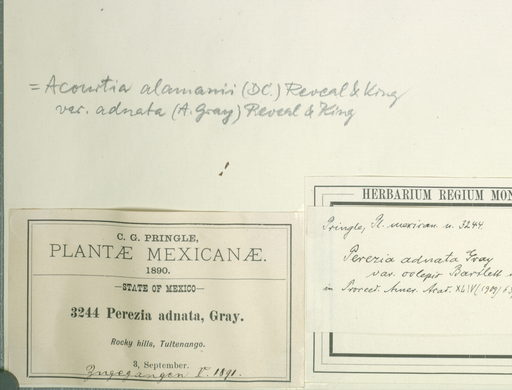 = Acourtia alamanii (DC.) Reveal & King
var. adnata (A. Gray) Reveal & King
HERBARIUM REGIUM MON
Pringle, Pl. mexican. n. 3244
Perezia adnata Gray
var. oolepis Bartlett
in Proceed. Amer. Acad. XLIV (1909)
C. G. PRINGLE,
PLANTÆ MEXICANÆ.
1890.
—STATE OF MEXICO—
3244 Perezia adnata, Gray.
Rocky hills, Tultenango.
3, September.
Zugegangen V. 1891.